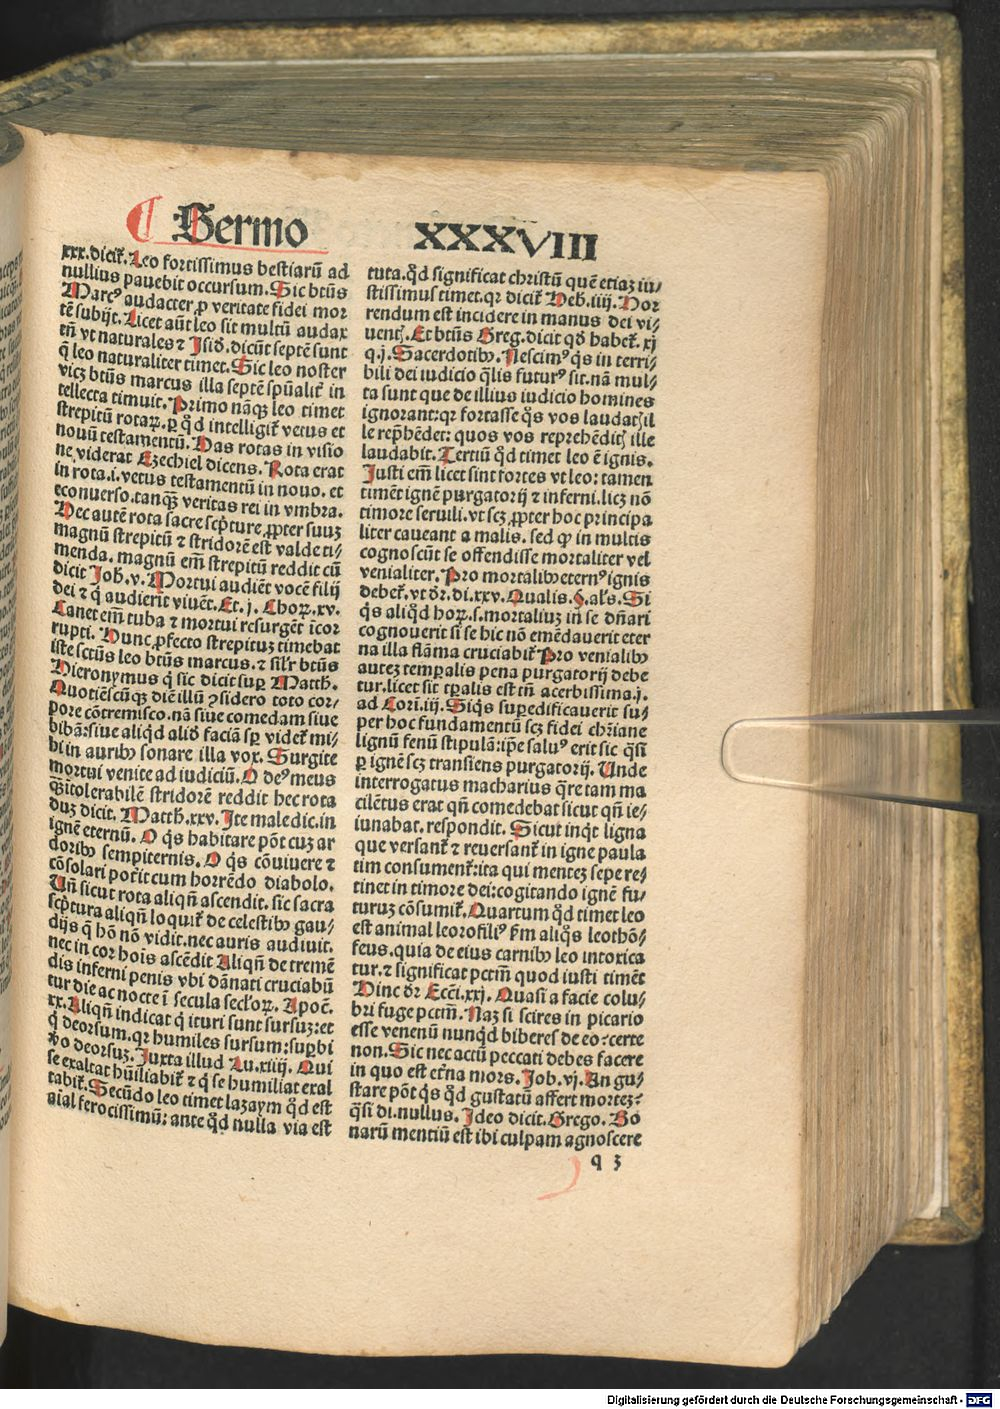 Sermo XXXVIII
xxx.dicit᷑. Leo fortissimus bestiarū ad
nullius pauebit occursum. Sic btūs
Marcꝰ audacter ꝓ veritate fidei mor
tē subijt. Licet aūt leo sit multū audax
tn̄ vt naturales ⁊ Isid. dicūt septē sunt
q̄ leo naturaliter timet. Sic leo noster
vicꝫ btūs marcus illa septē spūalit᷑ in
tellecta timuit. Primo nāqꝫ leo timet
strepitū rotaꝝ. ꝑ qd̄ intelligit᷑ vetus et
nouū testamentū. Has rotas in visio
ne viderat Ezechiel dicens. Rota erat
in rota.i. vetus testamentū in nouo. et
econuerso. tanqꝫ veritas rei in vmbra.
Hec autē rota sacre scp̄ture ꝓpter suuꝫ
magnū strepitū ⁊ stridorē est valde ti⸗
menda. magnū em̄ strepitū reddit cū
dicit Joh. v. Mortui audiēt vocē filij
dei ⁊ q̄ audierīt viuēt. Et .j. Choꝝ. xv.
Canet em̄ tuba ⁊ mortui resurgēt īcor
rupti. Hunc ꝓfecto strepituꝫ timebat
iste sctūs leo btūs marcus. ⁊ sil'r btūs
Hieronymus q̄ sic dicit suꝑ Matth.
Quotiēscūqꝫ diē illū ꝯsidero toto cor⸗
pore cōtremisco. nā siue comedam siue
bibā: siue aliqd̄ aliud faciā sp̄ videt᷑ mi⸗
hi in auribꝰ sonare illa vox. Surgite
mortui venite ad iudiciū. O deꝰ meus
qꝫ ītolerabilē stridorē reddit hec rota
duꝫ dicit. Matth. xxv. Ite maledic. in
ignē eternū. O qs̄ habitare pōt cuꝫ ar
doribꝰ sempiternis. O qs̄ cōuiuere ⁊
cōsolari poīt cum horrēdo diabolo.
Un̄ sicut rota aliqn̄ ascendit. sic sacra
scp̄tura aliqn̄ loquit᷑ de celestibꝰ gau⸗
dijs q̄ hō nō vidit. nec auris audiuit.
nec in cor hoīs ascēdit Aliqn̄ de tremē
dis inferni penis vbi dānati cruciabū
tur die ac nocte ī secula secl'oꝝ. Apoc̄.
xx. Aliqn̄ indicat q̄ ituri sunt sursuꝫ: et
q̄ deorsum. qꝛ humiles sursum: suꝑbi
ꝟo deorsuꝫ. Juxta illud Lu. xiiij. Qui
se exaltat hūiliabit᷑ ⁊ q̄ se humiliat exal
tabit᷑. Secūdo leo timet lazaym qd̄ est
aīal ferocissimū: ante qd̄ nulla via est
tuta. qd̄ significat christū quē etiaꝫ iu⸗
stissimus timet. qꝛ dicit᷑ Heb. iiij. Hor
rendum est incidere in manus dei vi⸗
uentꝭ. Et btūs Greg. dicit qd̄ habet᷑. xj
q.j. Sacerdotibꝰ. Nescimꝰ qs̄ in terri⸗
bili dei iudicio qlis futurꝰ sit. nā mul⸗
ta sunt que de illius iudicio homines
ignorant: qꝛ fortasse qs̄ vos laudatꝭ il
le rep̄hēdet: quos vos reprehēditꝭ ille
laudabit. Tertiū qd̄ timet leo ē ignis.
Justi em̄ licet sint fortes vt leo: tamen
timēt ignē purgatorij ⁊ inferni. licꝫ nō
timore seruili. vt scꝫ ꝓpter hoc principa
liter caueant a malis. sed ꝙ in multis
cognoscūt se offendisse mortaliter vel
venialiter. Pro mortalibꝰ eternꝰ ignis
debet᷑. vt dr̄. di. xxv. Qualis. §. al's. Si
qs̄ aliqd̄ hoꝝ. s. mortaliuꝫ in se dn̄ari
cognouerit si se hic nō emēdauerit eter
na illa flāma cruciabit᷑ Pro venialibꝰ
auteꝫ temꝑalis pena purgatorij debe
tur. licet sit tꝑalis est tn̄ acerbissima. j.
ad Cori. iij. Siqs̄ suꝑedificauerit su⸗
per hoc fundamentū scꝫ fidei chriane
lignū fenū stipulā: ip̄e saluꝰ erit sic qsi
ꝑ ignē scꝫ transiens purgatorij. Unde
interrogatus macharius qre tam ma
cilētus erat qn̄ comedebat sicut qn̄ ie⸗
iunabat. respondit. Sicut inqt ligna
que versant᷑ ⁊ reuersant᷑ in igne paula
tim consument᷑: ita qui menteꝫ sepe re⸗
tinet in timore dei: cogitando ignē fu⸗
turuꝫ cōsumit᷑. Quartum qd̄ timet leo
est animal leorofiliꝰ fm aliqs̄ leothō⸗
feus. quia de eius carnibꝰ leo intoxica
tur. ⁊ significat pctm̄ quod iusti timēt
Hinc dr̄ Ecci. xxj. Quasi a facie colu⸗
bri fuge pctm̄. Naꝫ si scires in picario
esse venenū nunqd̄ biberes de eo: certe
non. Sic nec actū peccati debes facere
in quo est etn̄a mors. Job. vj. An gu⸗
stare pōt qs̄ qd̄ gustatū affert mortez?
qsi di. nullus. Ideo dicit. Grego. Bo
narū mentiū est ibi culpam agnoscere
q 3
Digitalisierung gefördert durch die Deutsche Forschungsgemeinschaft - DFG